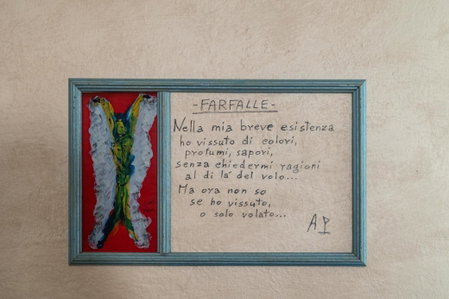 -FARFALLE-
Nella mia breve esistenza
ho vissuto di colori,
profumi, sapori,
senza chiedermi ragioni
al di là del volo...
Ma ora non so
se ho vissuto,
o solo volato...
AP